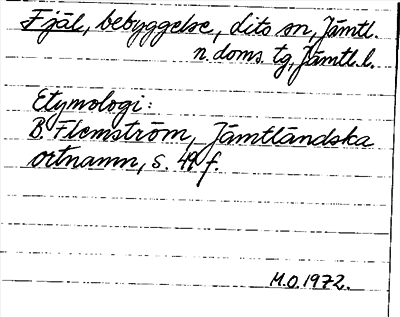 Fjäl, bebyggelse, dits sn, Jämtl.
n. doms. tg, Jämtl. l.
Etymologi:
B. Flemström, Jämtländska
ortnamn, s. 49 f.
M.O. 1972.